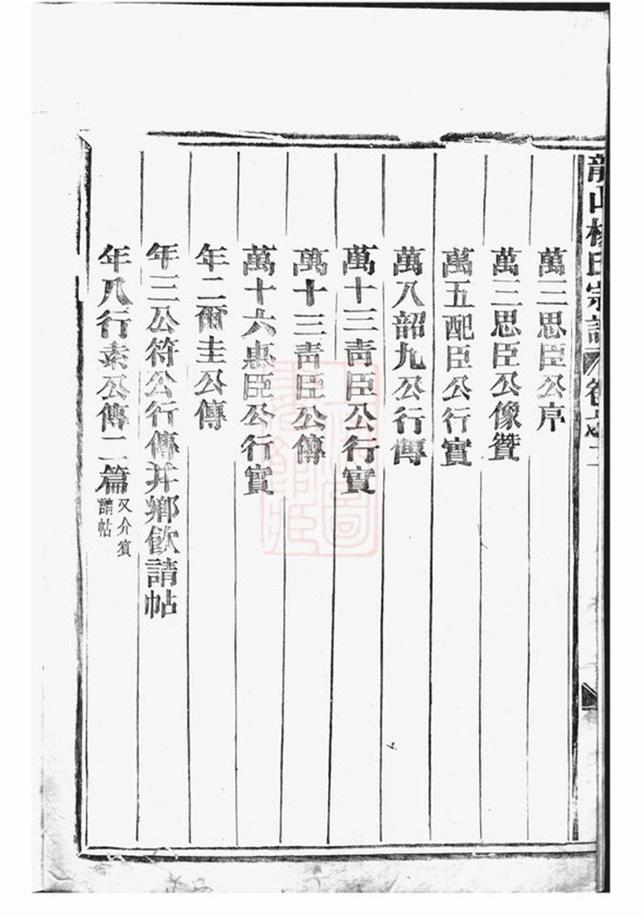 龍山楊氏宗譜 卷之二
萬三思臣公序
萬三思臣公像贊
萬五配臣公行實
萬八韶九公行傳
萬十三靑臣公行實
萬十三靑臣公傳
萬十六惠臣公行實
年二爾圭公傳
年三公符公行傳并鄉飲請帖
年八行素公傳二篇 又介賓請帖